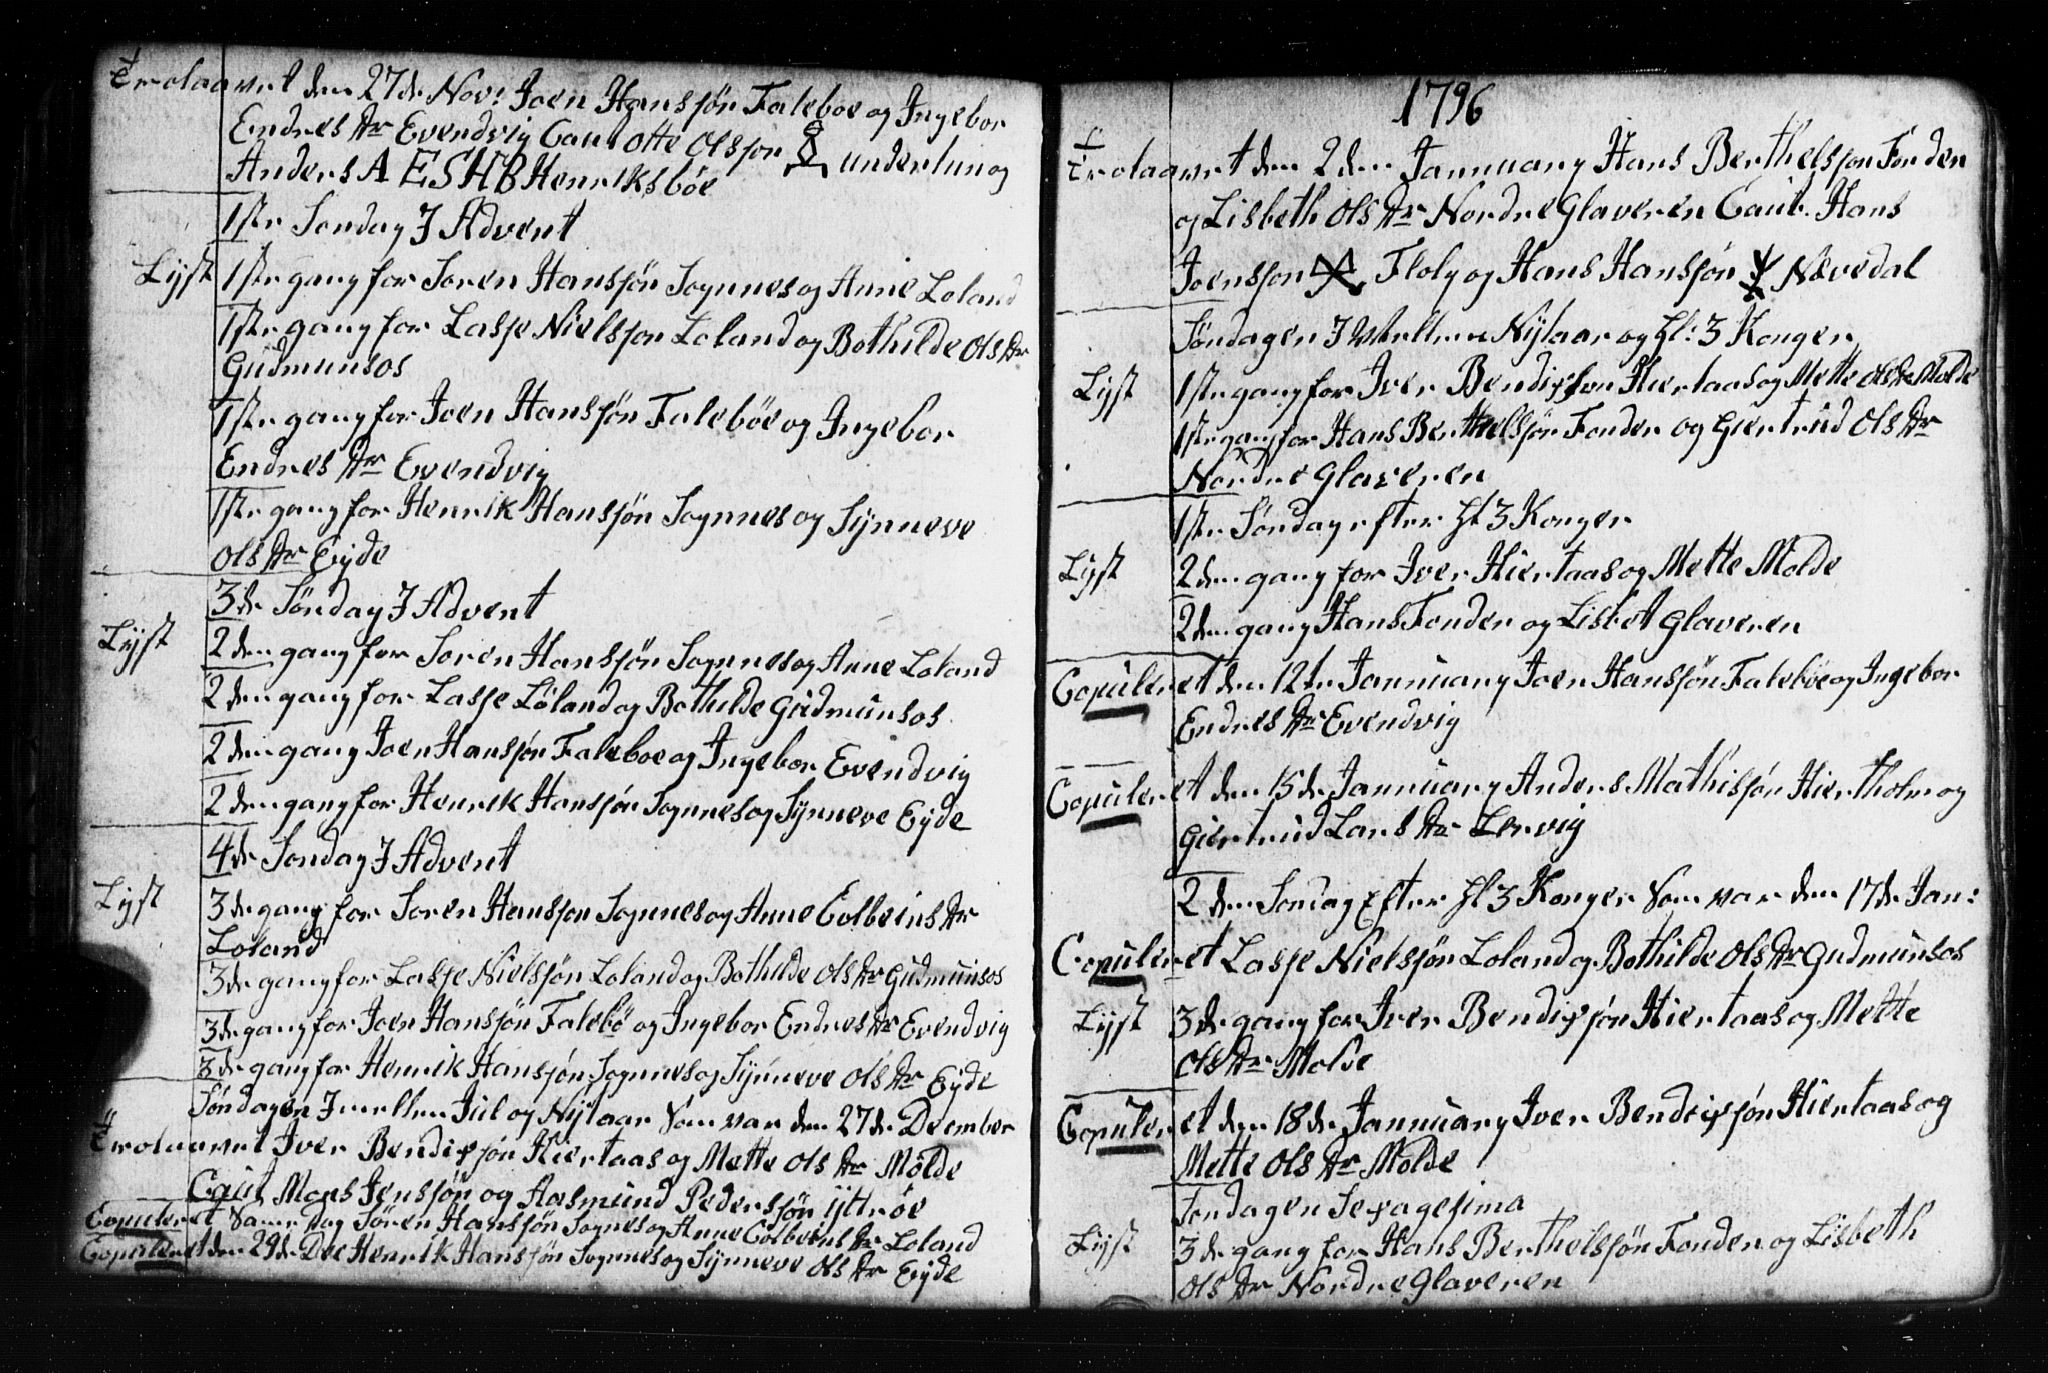 Trolaavet den 27de Nov: Joen Hansjøn Faleboe og Ingebor
Endres dr Evendvig Caut Otte Olsson underlun og
Anders A E S H B Henriksbøe
1ste Sondag I Advent
Lyst 1ste gang for Soren Hansjøn Sognnes og Anne Loland
1ste gang for Lasse Nielsson Loland og Bothilde Ols dr
Gudmunsos
1ste gang for Joen Hansjøn Falebøe og Ingebor
Endres dr Evendvig
1ste gang for Henrik Hansjøn Sognnes og Synneve
Ols dr Eyde
3de Søndag I Advent
Lyst 2den gang for Soren Hansjøn Sognnes og Anne Loland
2den gang for Lasse Løland og Bothilde Gudmunsos
2den gang Joen Hansjøn Faleboe og Ingebor Evendvig
2den gang for Henrik Hansjøn Sognnes og Synneve Eyde
4de Sondag I Advent
Lyst 3de gang for Soren Hansjon Sognnes og Anne Colbeins dr
Loland
3de gang for Lasse Nielsjøn Loland og Bothilde Ols dr Gudmunsos
3de gang for Joen Hansjøn Falebø og Ingebor Endres dr Evendvig
3de gang for Henrik Hansjøn Sognnes og Synneve Ols dr Eyde
Søndagen Imellem Jul og Nytaar Som var den 27de December
Trolaavet Iver Bendixsjøn Hiertaas og Mette Ols dr Molde
Caut Mons Jensjøn og Aasmund Pedersjøn ÿttrøe
Copuleret Samme Dag Søren Hansjøn Sognes og Anne Colbeins dr Loland
Copuleret den 29de Dec Henrik Hansjøn Sognnes og Synneve Ols dr Eyde
1796
Trolaavet den 2den Jannuary Hans Berthelsjon Fonden
og Lisbeth Ols dr Nordre Glaveren Caut. Hans
Joensson Floly og Hans Hansjøn Nævedal
Søndagen I Mellem Nytaar og hl: 3 Konger
Lyst 1ste gang for Iver Bendixson Hiertaas og Mette Ols dr Molde
1ste gang for Hans Berthelsjøn Fonden og Giertrud Ols dr
Nordre Glaveren
1ste Søndag efter hl 3 Konger
Lyst 2den gang for Iver Hiertaas og Mette Molde
2den gang Hans Fonden og Lisbet Glaveren
Copuleret den 12te Jannuary Joen Hansjøn Falebøe og Ingebor
Endres dr Evendvig
Copuleret den 15de Jannuary Anders Mathisjøn Hiertholm og
Giertrud Lars dr Lervig
2den Sondag Efter hl 3 Konger Som var den 17de Jan:
Copuleret Lasse Nielsjøn Loland og Bothilde Ols dr Gudmunsos
Lyst 3de gang for Iver Bendixsjøn Hiertaas og Mette
Ols dr Molde
Copuleret den 18de Jannuary Iver Bendixsjøn Hiertaas og
Mette Ols dr Molde
Sondagen Sexagesima
Lyst 3de gang for Hans Berthelsjøn Fonden og Lisbeth
Ols dr Nordre Glaveren